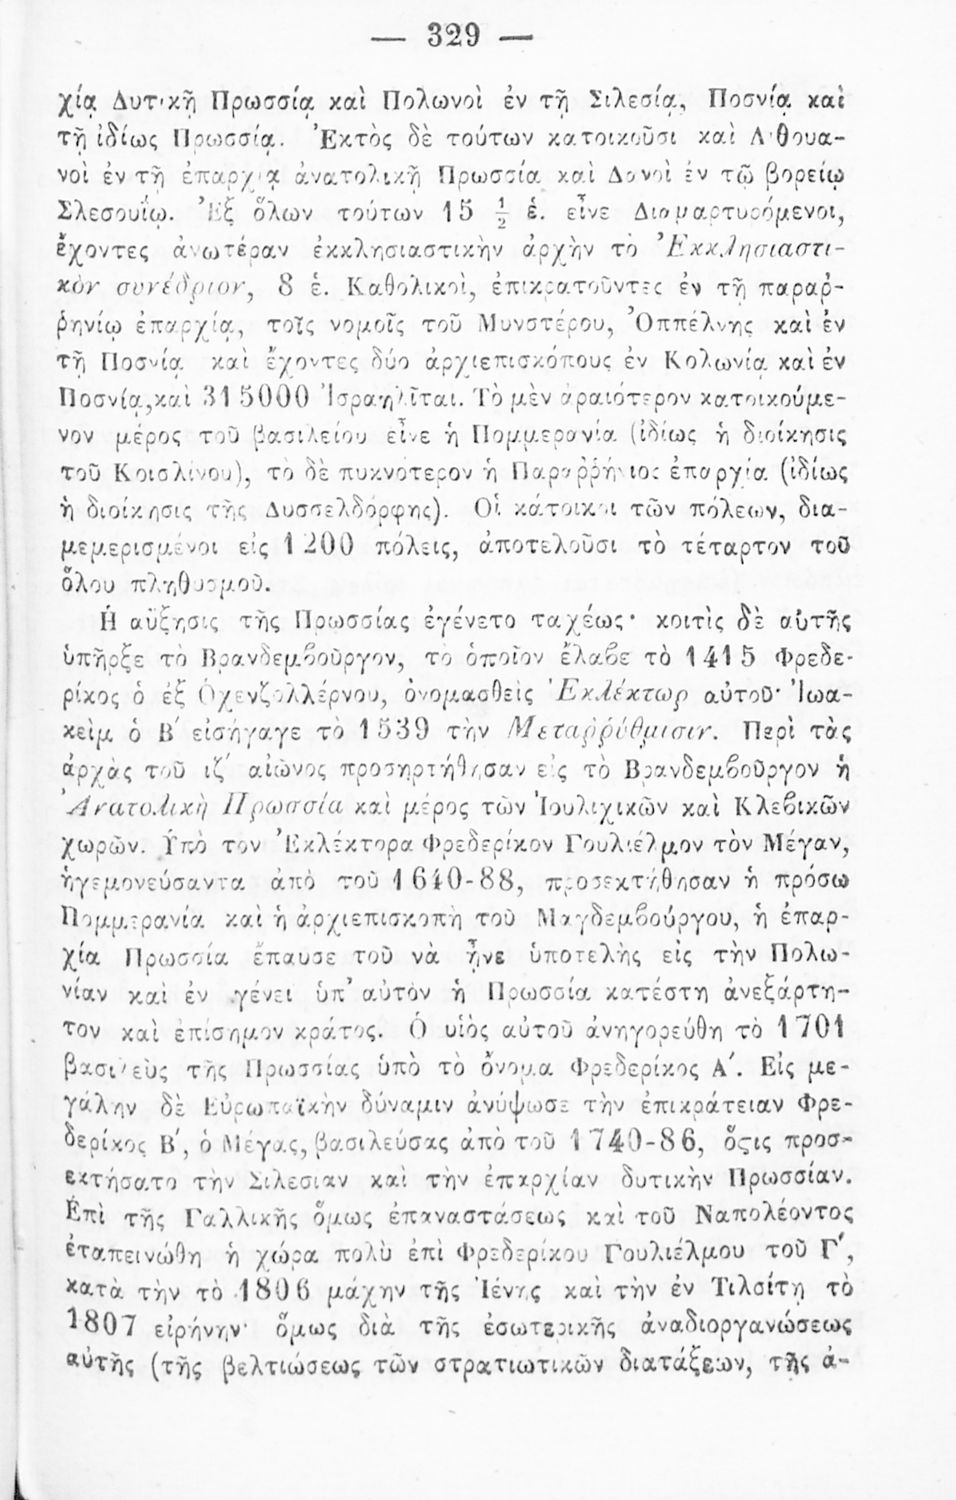 — 329 —
χίᾳ Δυτικῇ Πρωσσίᾳ καὶ Πολωνοὶ ἐν τῇ Σιλεσίᾳ, Ποσνίᾳ καὶ
τῇ ἰδίως Πρωσσίᾳ. Ἐκτὸς δὲ τούτων κατοικοῦσι καὶ Λιθουα-
νοὶ ἐν τῇ ἐπαρχίᾳ ἀνατολικῇ Πρωσσίᾳ καὶ Δανοὶ ἐν τῷ βορείῳ
Σλεσουΐῳ. Ἐξ ὅλων τούτων 15 ½ ἑ. εἶνε Διαμαρτυρόμενοι,
ἔχοντες ἀνωτέραν ἐκκλησιαστικὴν ἀρχὴν τὸ Ἐκκλησιαστι-
κὸν συνέδριον, 8 ἑ. Καθολικοὶ, ἐπικρατοῦντες ἐν τῇ παραῤ-
ῥηνίῳ ἐπαρχίᾳ, τοῖς νομοῖς τοῦ Μυνστέρου, Ὀππέλνης καὶ ἐν
τῇ Ποσνίᾳ καὶ ἔχοντες δύο ἀρχιεπισκόπους ἐν Κολωνίᾳ καὶ ἐν
Ποσνίᾳ, καὶ 315000 Ἰσραηλῖται. Τὸ μὲν ἀραιότερον κατοικούμε-
νον μέρος τοῦ βασιλείου εἶνε ἡ Πομμερανία (ἰδίως ἡ διοίκησις
τοῦ Κοισλίνου), τὸ δὲ πυκνότερον ἡ Παραῤῥήνιος ἐπαρχία (ἰδίως
ἡ διοίκησις τῆς Δυσσελδόρφης). Οἱ κάτοικοι τῶν πόλεων, δια-
μεμερισμένοι εἰς 1200 πόλεις, ἀποτελοῦσι τὸ τέταρτον τοῦ
ὅλου πληθυσμοῦ.
Ἡ αὔξησις τῆς Πρωσσίας ἐγένετο ταχέως· κοιτὶς δὲ αὐτῆς
ὑπῆρξε τὸ Βρανδεμβοῦργον, τὸ ὁποῖον ἔλαβε τὸ 1415 Φρεδε-
ρίκος ὁ ἐξ Ὁχενζολλέρνου, ὀνομασθεὶς Ἐκλέκτωρ αὐτοῦ· Ἰωα-
κεὶμ ὁ Β΄ εἰσήγαγε τὸ 1539 τὴν Μεταῤῥύθμισιν. Περὶ τὰς
ἀρχὰς τοῦ ιζ΄ αἰῶνος προσηρτήθησαν εἰς τὸ Βρανδεμβοῦργον ἡ
Ἀνατολικὴ Πρωσσία καὶ μέρος τῶν Ἰουλιχικῶν καὶ Κλεβικῶν
χωρῶν. Ὑπὸ τὸν Ἐκλέκτορα Φρεδερίκον Γουλιέλμον τὸν Μέγαν,
ἡγεμονεύσαντα ἀπὸ τοῦ 1640-88, προσεκτήθησαν ἡ πρόσω
Πομμερανία καὶ ἡ ἀρχιεπισκοπὴ τοῦ Μαγδεμβούργου, ἡ ἐπαρ-
χία Πρωσσία ἔπαυσε τοῦ νὰ ἦνε ὑποτελὴς εἰς τὴν Πολω-
νίαν καὶ ἐν γένει ὑπ' αὐτὸν ἡ Πρωσσία κατέστη ἀνεξάρτη-
τον καὶ ἐπίσημον κράτος. Ὁ υἱὸς αὐτοῦ ἀνηγορεύθη τὸ 1701
βασιλεὺς τῆς Πρωσσίας ὑπὸ τὸ ὄνομα Φρεδερίκος Α΄. Εἰς με-
γάλην δὲ Εὐρωπαϊκὴν δύναμιν ἀνύψωσε τὴν ἐπικράτειαν Φρε-
δερίκος Β΄, ὁ Μέγας, βασιλεύσας ἀπὸ τοῦ 1740-86, ὅςις προσ-
εκτήσατο τὴν Σιλεσίαν καὶ τὴν ἐπαρχίαν δυτικὴν Πρωσσίαν.
Ἐπὶ τῆς Γαλλικῆς ὅμως ἐπαναστάσεως καὶ τοῦ Ναπολέοντος
ἐταπεινώθη ἡ χώρα πολὺ ἐπὶ Φρεδερίκου Γουλιέλμου τοῦ Γ΄,
κατὰ τὴν τὸ 1806 μάχην τῆς Ἰένης καὶ τὴν ἐν Τιλσίτῃ τὸ
1807 εἰρήνην· ὅμως διὰ τῆς ἐσωτερικῆς ἀναδιοργανώσεως
αὐτῆς (τῆς βελτιώσεως τῶν στρατιωτικῶν διατάξεων, τῆς ἀ-